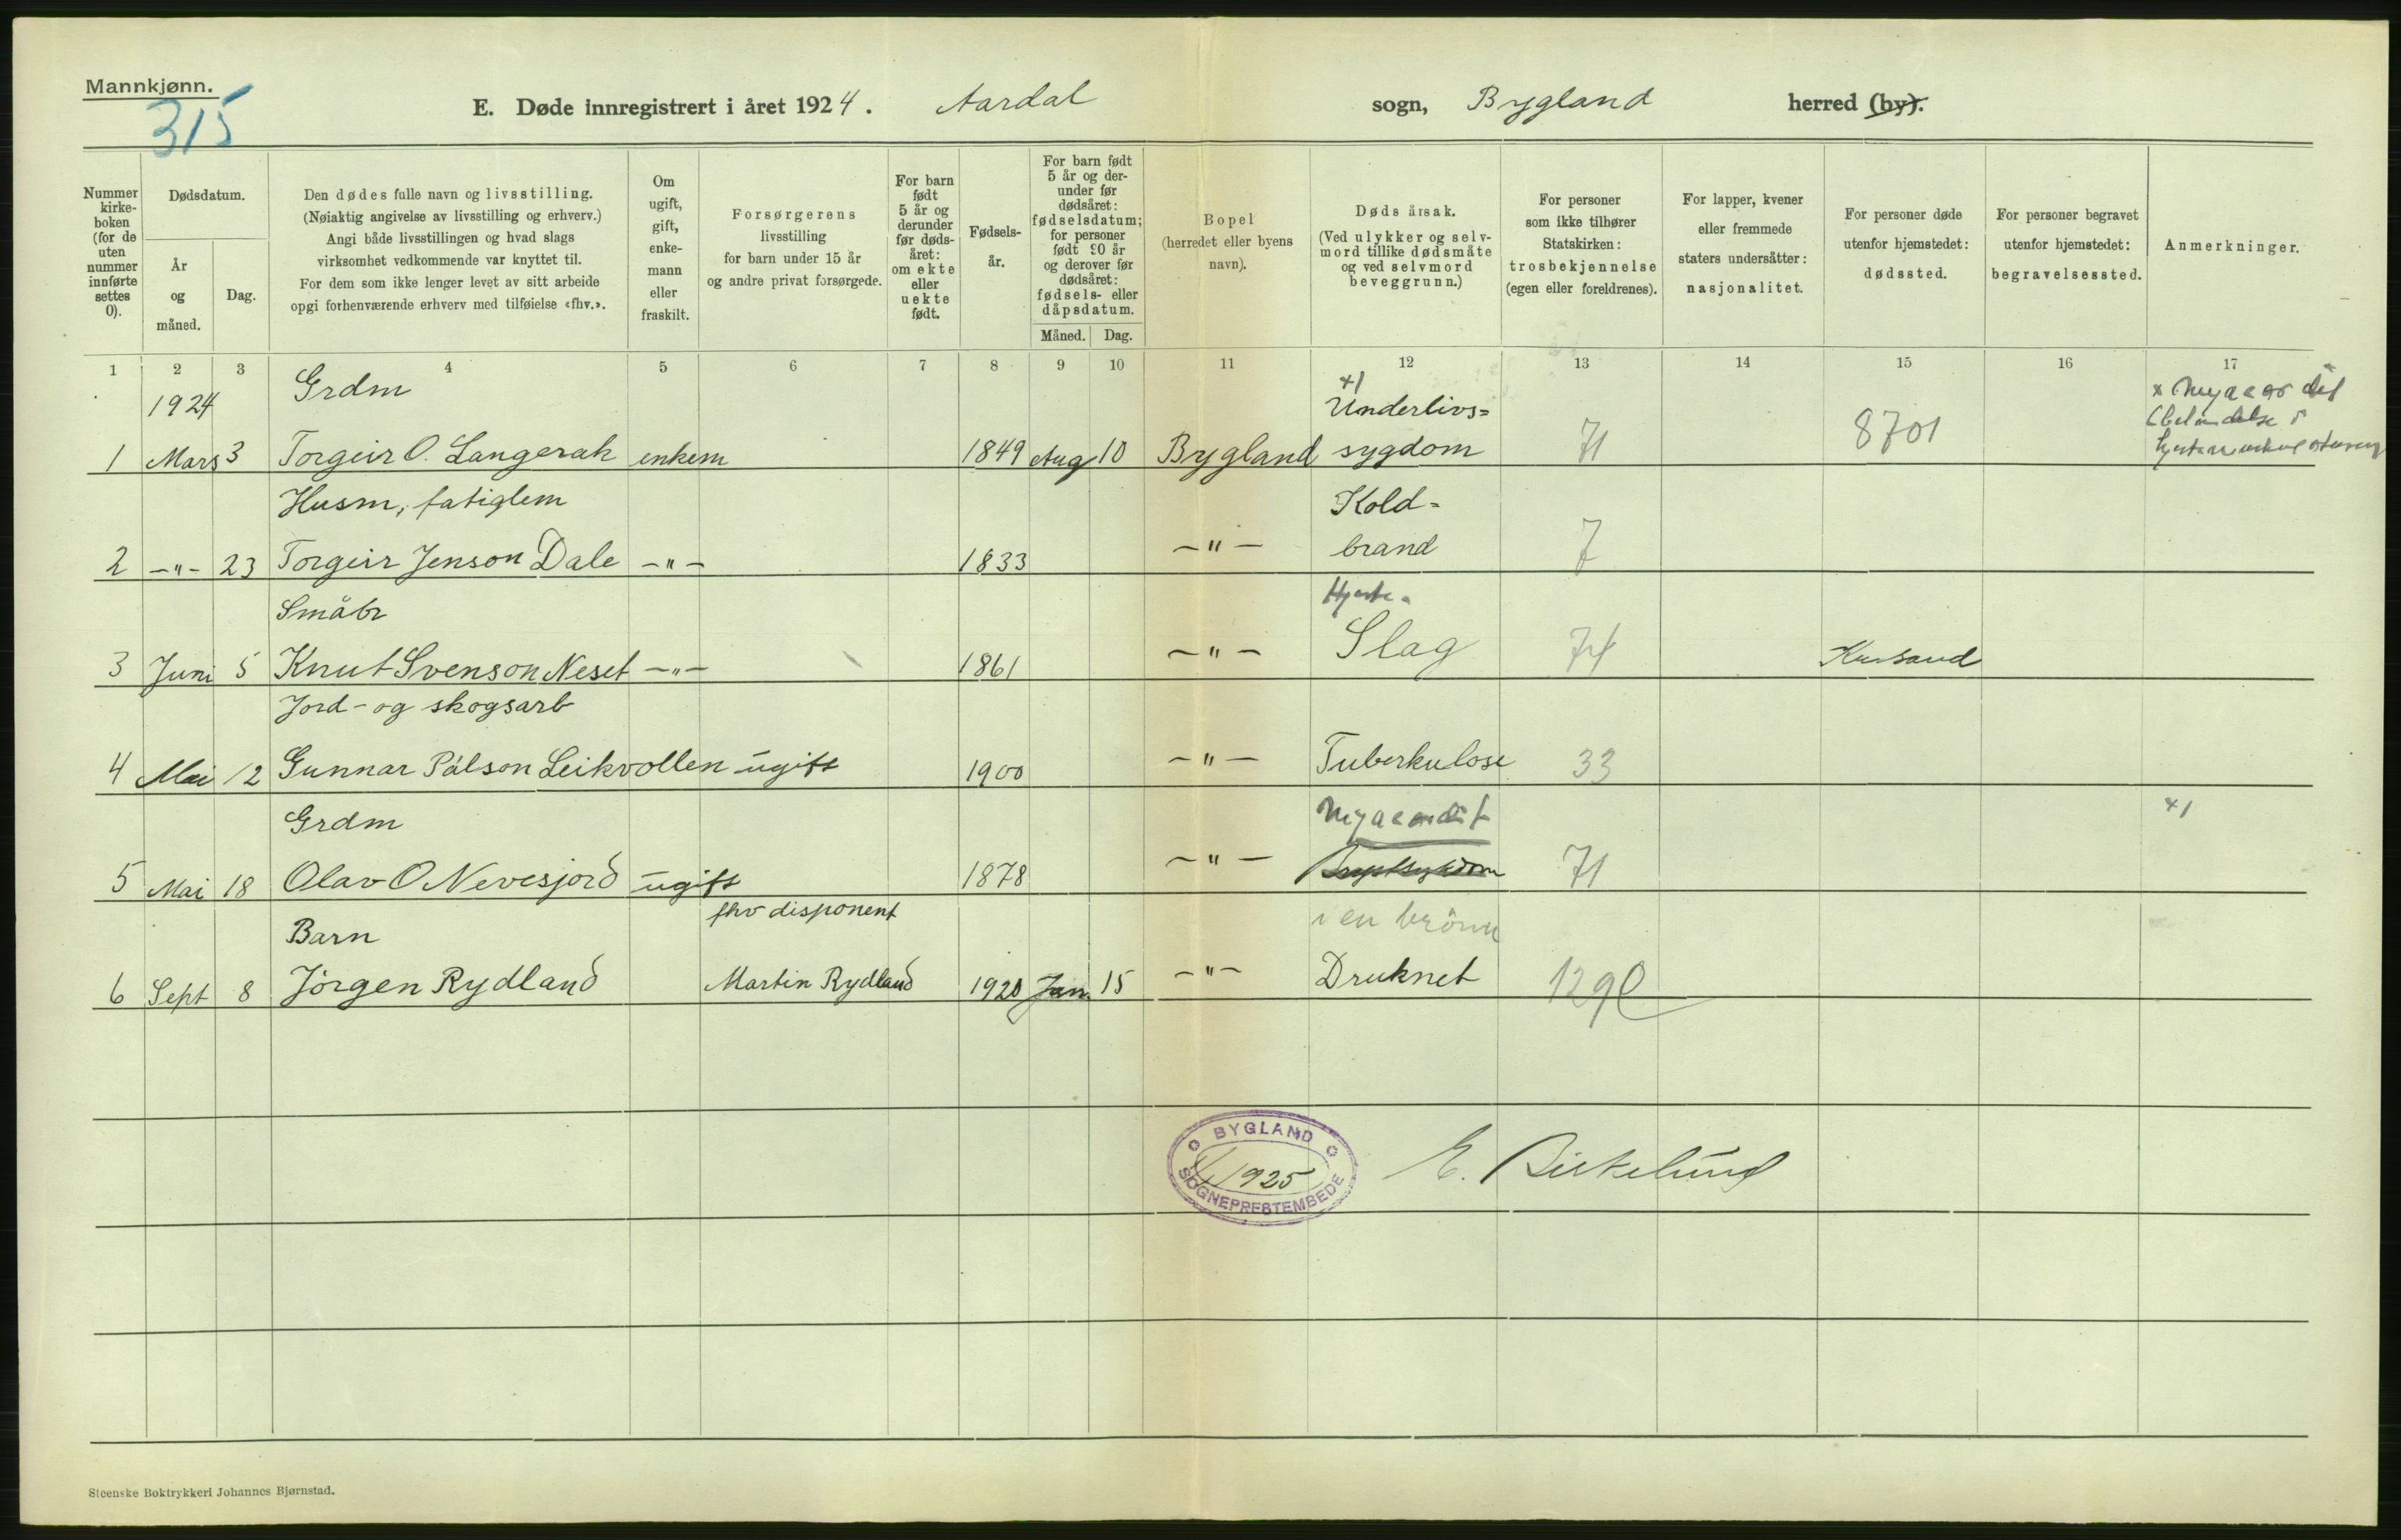 Mannkjønn.
315
E. Døde innregistrert i året 1924. Aardal sogn, Bygland herred (by).
Nummer kirke-boken (for de uten nummer innførte settes 0).
Dødsdatum.
År og måned.
Dag.
Den dødes fulle navn og livsstilling.
(Nøiaktig angivelse av livsstilling og erhverv.)
Angi både livsstillingen og hvad slags
virksomhet vedkommende var knyttet til.
For dem som ikke lenger levet av sitt arbeide
opgi forhenværende erhverv med tilføielse «fhv.».
Om ugift, gift, enke-mann eller fraskilt.
Forsørgerens
livsstilling
for barn under 15 år
og andre privat forsørgede.
For barn født 5 år og derunder før døds-året: om ekte eller uekte født.
Fødsels-år.
For barn født 5 år og der-under før dødsåret: fødselsdatum; for personer født 90 år og derover før dødsåret: fødsels- eller dåpsdatum.
Måned. Dag.
Bopel
(herredet eller byens navn).
Døds årsak.
(Ved ulykker og selv-mord tillike dødsmåte og ved selvmord beveggrunn.)
For personer som ikke tilhører Statskirken: trosbekjennelse (egen eller foreldrenes).
For lapper, kvener eller fremmede staters undersåtter: nasjonalitet.
For personer døde utenfor hjemstedet: dødssted.
For personer begravet utenfor hjemstedet: begravelsessted.
Anmerkninger.
1 2 3 4 5 6 7 8 9 10 11 12 13 14 15 16 17
1924 Grdm x) Underlivs=
1 Mars 3 Torgeir O. Langerak enkem 1849 Aug 10 Bygland sygdom 71 8701
Husm, fatiglem Kold=
2 -"- 23 Torgeir Jenson Dale -"- 1833 -"- brand 7
Småbr Hjerte-
3 Juni 5 Knut Svenson Neset -"- 1861 -"- Slag 74 Krsand
Jord- og skogsarb
4 Mai 12 Gunnar Pålson Leikvollen ugift 1900 -"- Tuberkulose 33
Grdm x)
5 Mai 18 Olav O Nevesjord ugift 1878 -"- 71
Barn fhv disponent i en brönn
6 Sept 8 Jörgen Rydland Martin Rydland 1920 Jan. 15 -"- Druknet 129
BYGLAND
1925
SOGNEPRESTEMBEDE
E. Birkelund
Steenske Boktrykkeri Johannes Bjørnstad.